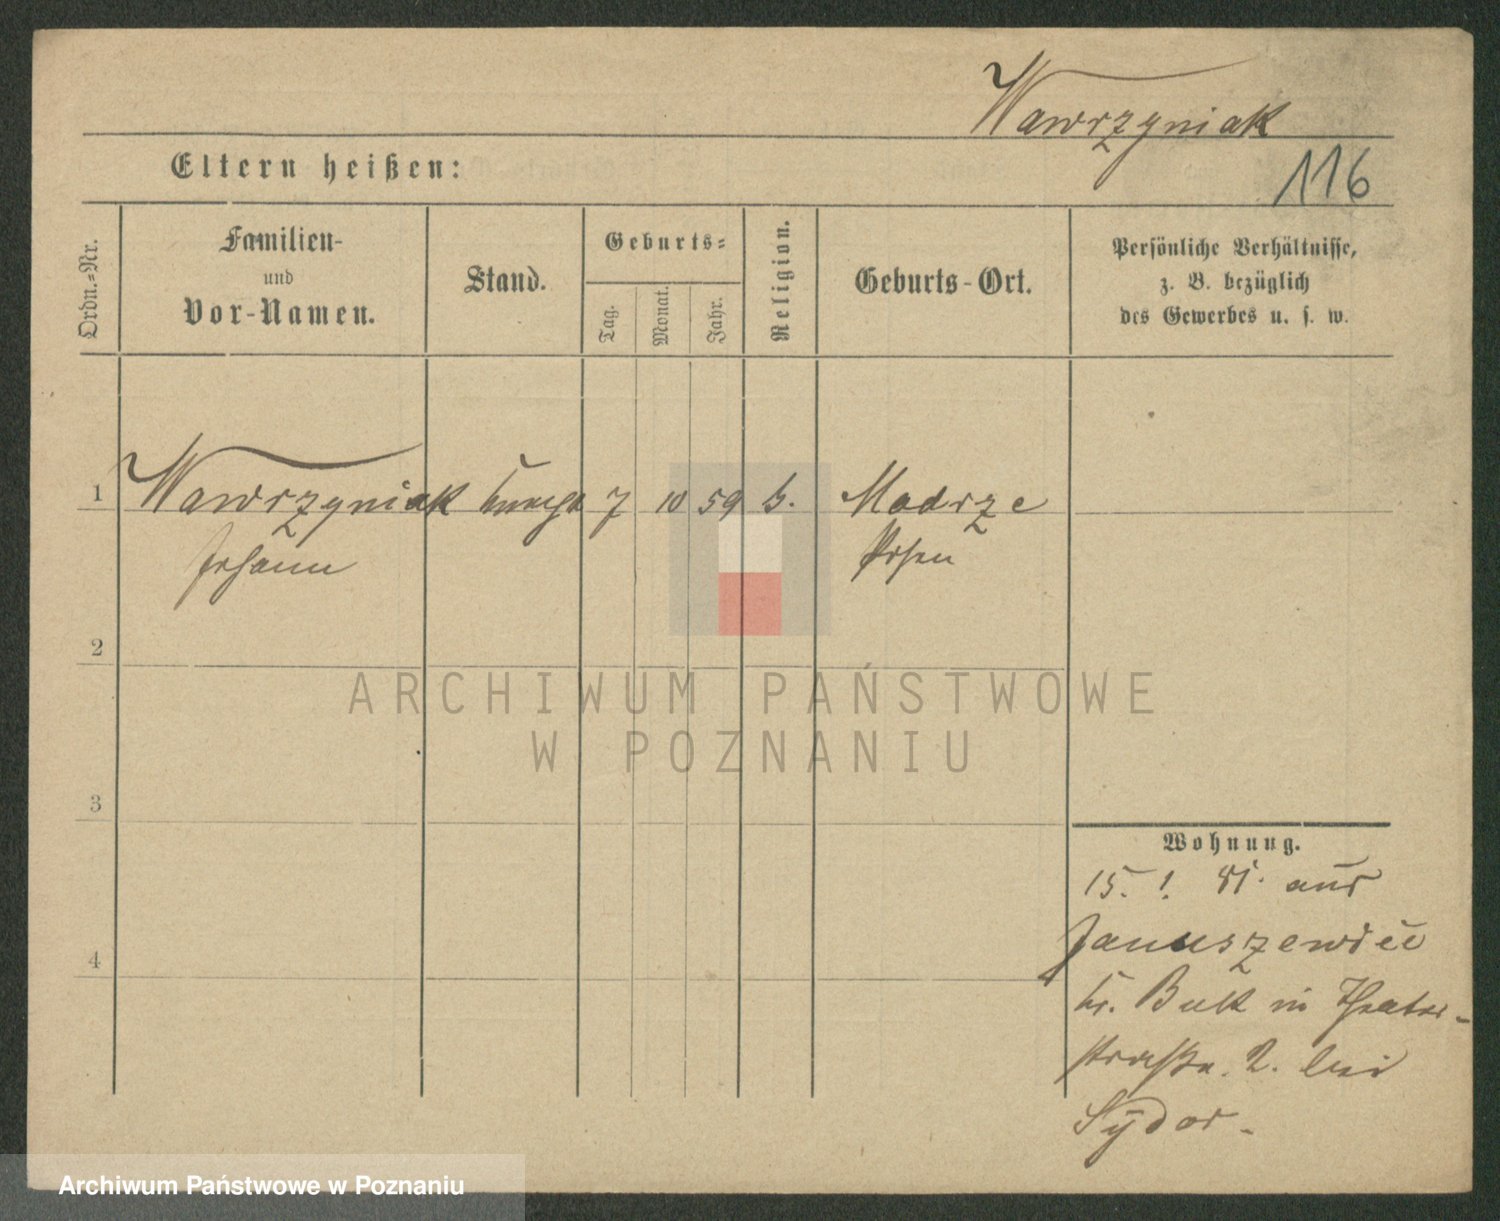 Wawrzyniak
116
Eltern heißen:
Ordn.-Nr.
Familien-
und
Vor-Namen.
Stand.
Geburts-
Tag.
Monat.
Jahr.
Religion.
Geburts-Ort.
Persönliche Verhältnisse,
z. B. bezüglich
des Gewerbes u. s. w.
1 Wawrzyniak Knecht 7 10 59 k. Modrze
Johann Posen
2
3
4
Wohnung.
15. 1. 81. aus
Januszewice
Kr. Buk in Theater-
straße. 2. bei
Sydor.
ARCHIWUM PAŃSTWOWE
W POZNANIU
Archiwum Państwowe w Poznaniu